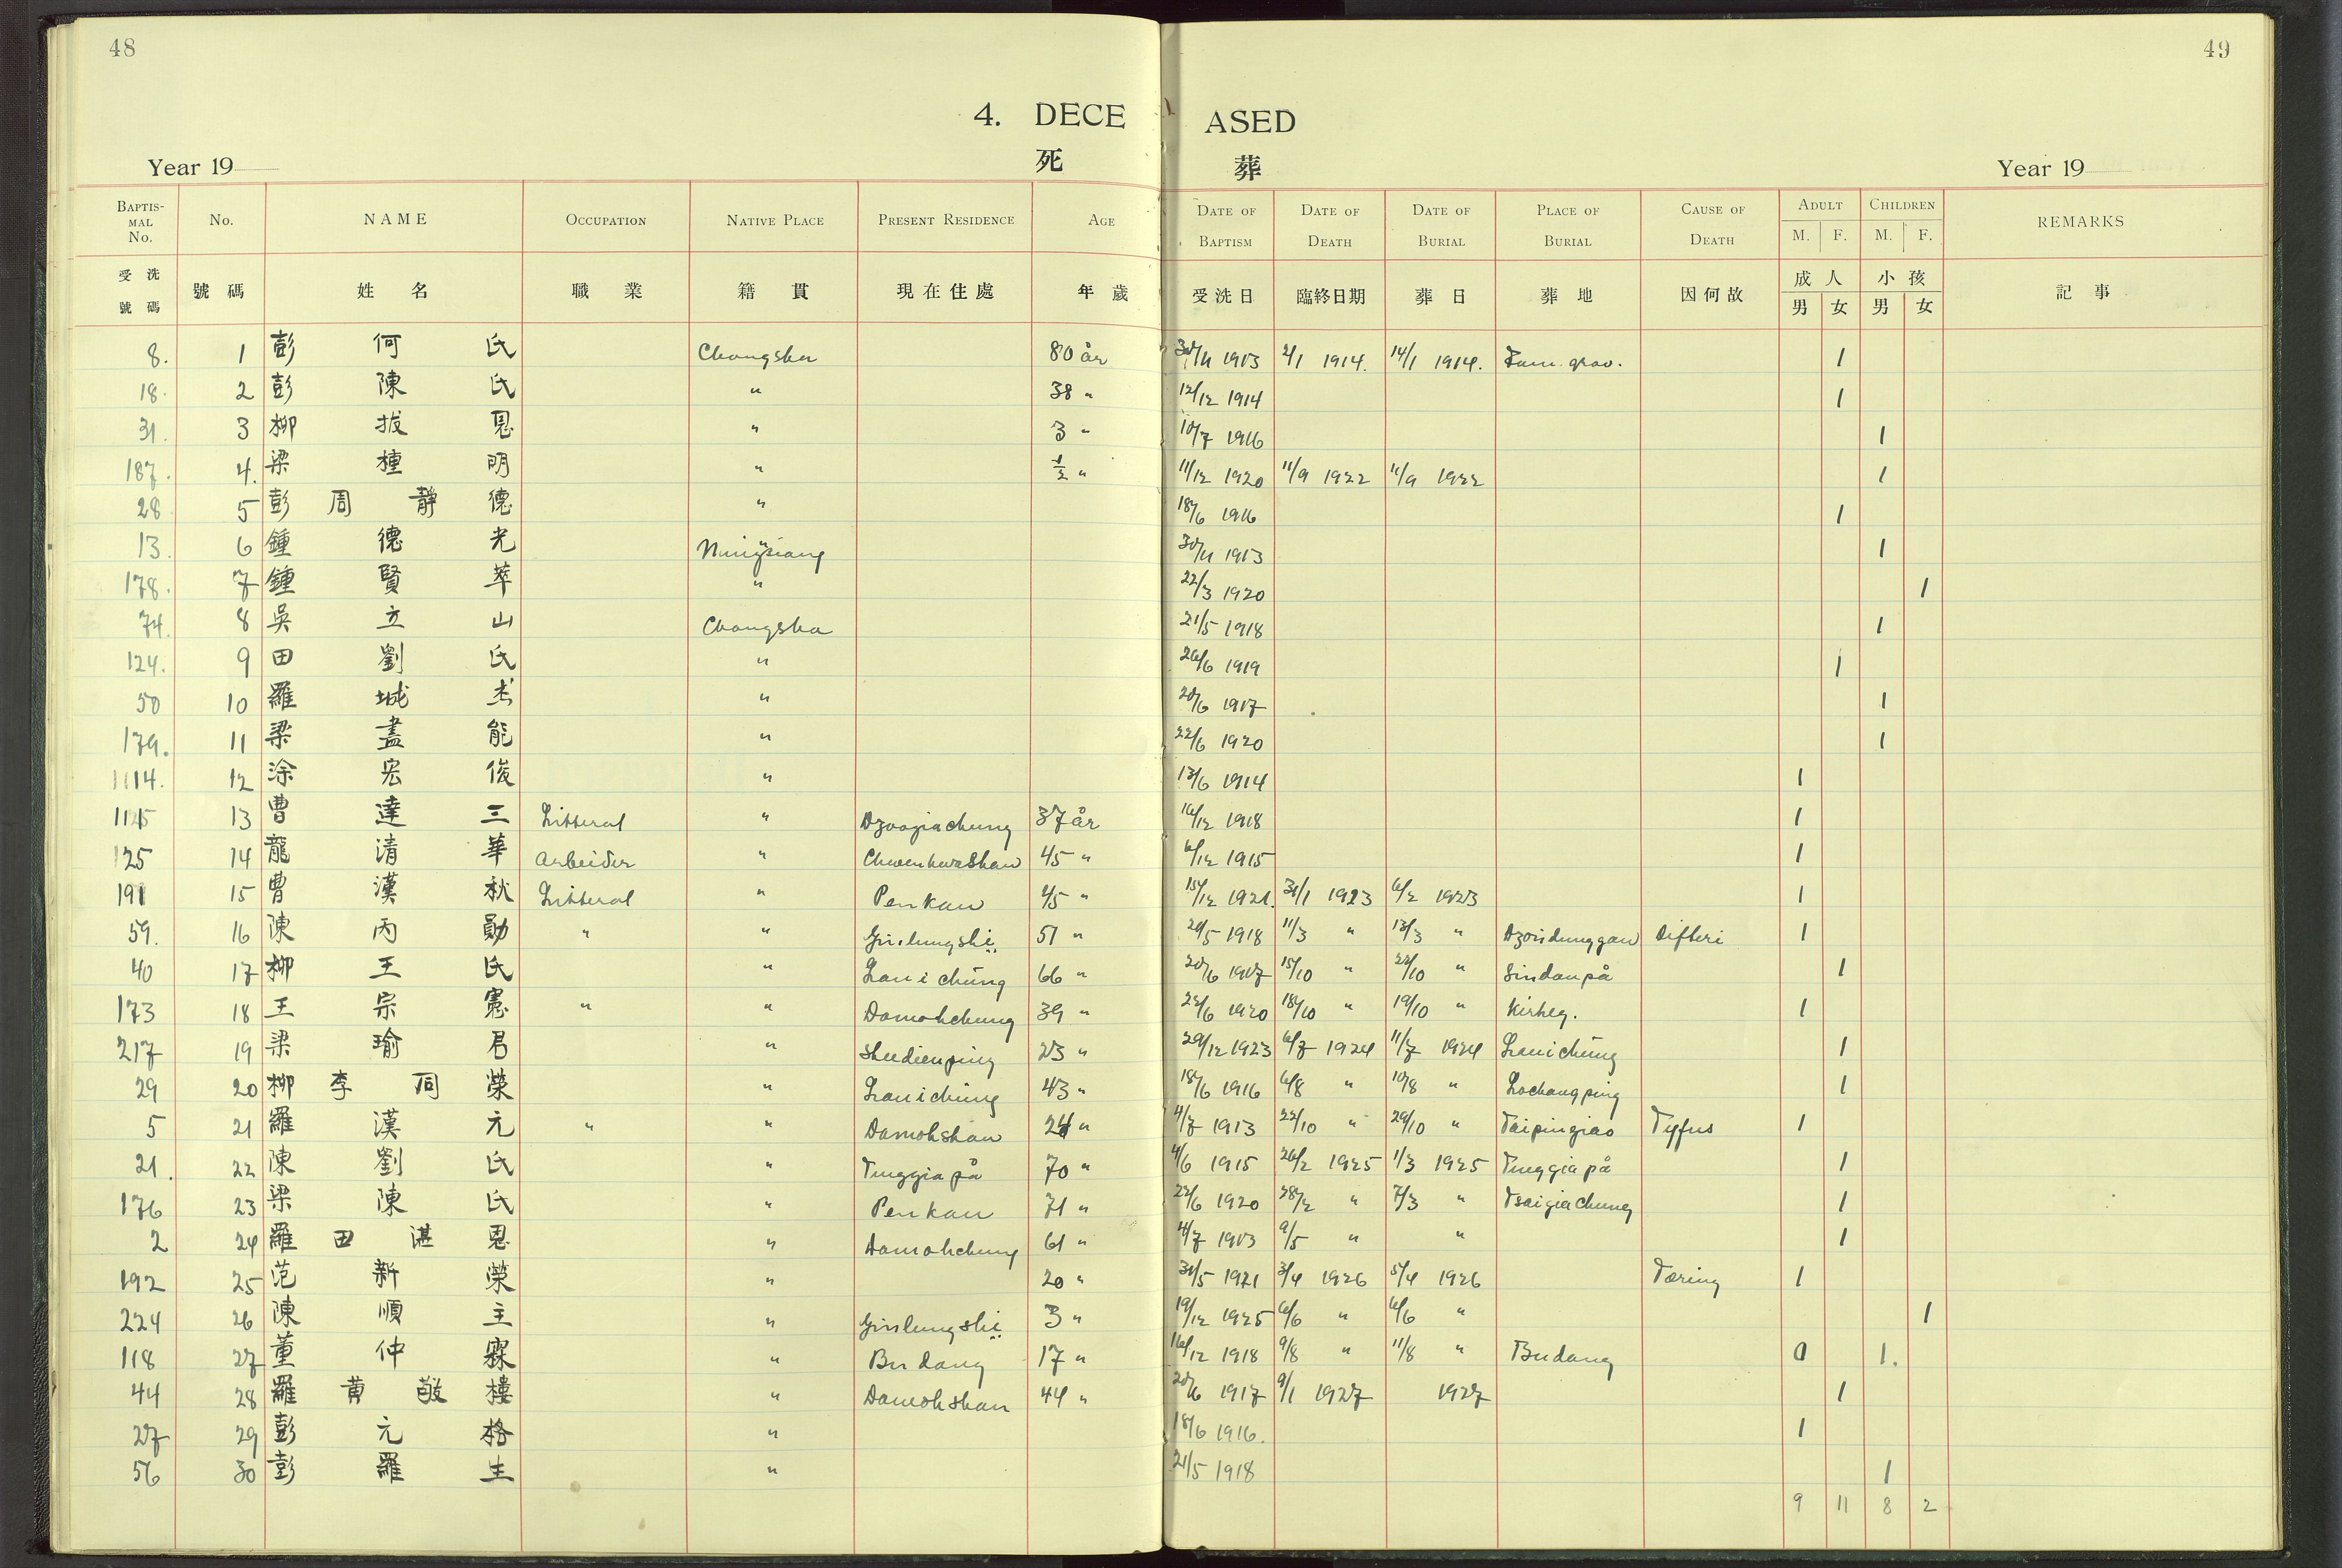 48
49
4. DECEASED
死 葬
Year 19
Year 19
BAPTISMAL No. No. NAME OCCUPATION NATIVE PLACE PRESENT RESIDENCE AGE DATE OF BAPTISM DATE OF DEATH DATE OF BURIAL PLACE OF BURIAL CAUSE OF DEATH ADULT M. F. CHILDREN M. F. REMARKS
受洗號碼 號碼 姓名 職業 籍貫 現在住處 年歲 受洗日 臨終日期 葬日 葬地 因何故 成人 男 女 小孩 男 女 記事
8. 1 彭何氏 Changsha 80 år 30/11 1913 2/1 1914. 14/1 1914. Fam. grav. 1
18. 2 彭陳氏 " 38 " 12/12 1914 1
31. 3 柳拔恩 " 3 " 10/7 1916 1
187. 4. 梁種明 " ½ " 11/12 1920 11/9 1922 11/9 1922 1
28 5 彭周靜德 " 18/6 1916 1
13. 6 鍾德光 Ningsiang 30/11 1913 1
178. 7 鍾賢萃 " 22/3 1920 1
74. 8 吳立山 Changsha 21/5 1918 1
124. 9 田劉氏 " 26/6 1919 1
50 10 羅城杰 " 20/6 1917 1
179. 11 梁盡能 " 22/6 1920 1
1114. 12 涂宏俊 " 13/6 1914 1
13 曹達三 Litteral " Dzaogiachung 37 år 16/12 1918 1
125 14 龍清華 Arbeider " Chwenhwashan 45 " 6/12 1915 1
191 15 曹漢秋 Litteral " Penkau 45 " 15/12 1921. 31/1 1923 6/2 1923 1
59. 16 陳丙勛 " " Ginlungshï 51 " 20/5 1918 11/3 " 13/3 " Dzoidunggan Difteri 1
40 17 柳王氏 " Lanichung 66 " 20/6 1917 15/10 " 22/10 " Sindanpå 1
173 18 王宗憲 " " Damohchung 39 " 22/6 1920 18/10 " 19/10 " Kirkeg. 1
217 19 梁瑜君 " Shudienping 23 " 29/12 1923 6/7 1924 11/7 1924 Lanichung 1
29 20 柳李同榮 " Lanichung 43 " 18/6 1916 6/8 " 10/8 " Lochangping 1
5 21 羅漢元 " " Damohshan 24 " 4/7 1913 22/10 " 29/10 " Taipingiao Tyfus 1
21. 22 陳劉氏 " Tunggiapå 70 " 4/6 1915 26/2 1925 1/3 1925 Tunggiapå 1
176 23 梁陳氏 " Penkau 71 " 22/6 1920 28/2 " 7/3 " Tsaigiachung 1
2 24 羅田湛恩 " Damohchung 61 " 4/7 1913 9/5 " " 1
192 25 范新榮 " 20 " 31/5 1921 3/4 1926 5/4 1926 Tæring 1
224 26 陳順主 " Ginlungshï 3 " 19/12 1925 6/6 " 6/6 " 1
118 27 董仲霖 " Budang 17 " 16/12 1918 9/8 " 11/8 " Budang 0 1.
44 28 羅黄敬樓 " Damohshan 44 " 20/6 1917 9/1 1927 1927 1
27 29 彭元格 " 18/6 1916. 1
56 30 彭羅生 " 21/5 1918 1
9 11 8 2